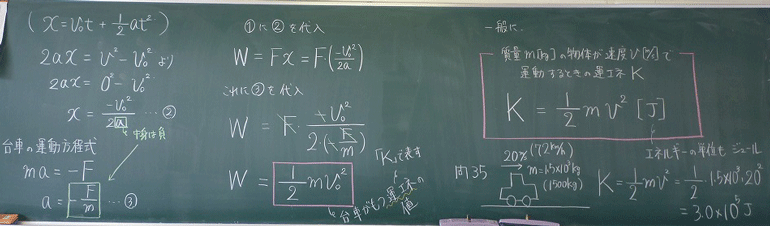 (x=v₀t+1/2at²)
2ax=v²-v₀²より
2ax=0²-v₀²
x=-v₀²/2a …②
中身は負
台車の運動方程式
ma=-F
a=-F/m …③
①に②を代入
W=Fx=F・(-v₀²/2a)
これに③を代入
W=F・-v₀²/2・(-F/m)
W=1/2mv₀²
「K」で表す
台車がもつ運エネの値
一般に、
質量m[kg]の物体が速度v[m/s]で
運動するときの運エネK
K=1/2mv²[J]
エネルギーの単位もジュール
問35
20m/s(72km/h)
m=1.5×10³kg
(1500kg)
K=1/2mv²=1/2・1.5×10³・20²
=3.0×10⁵J